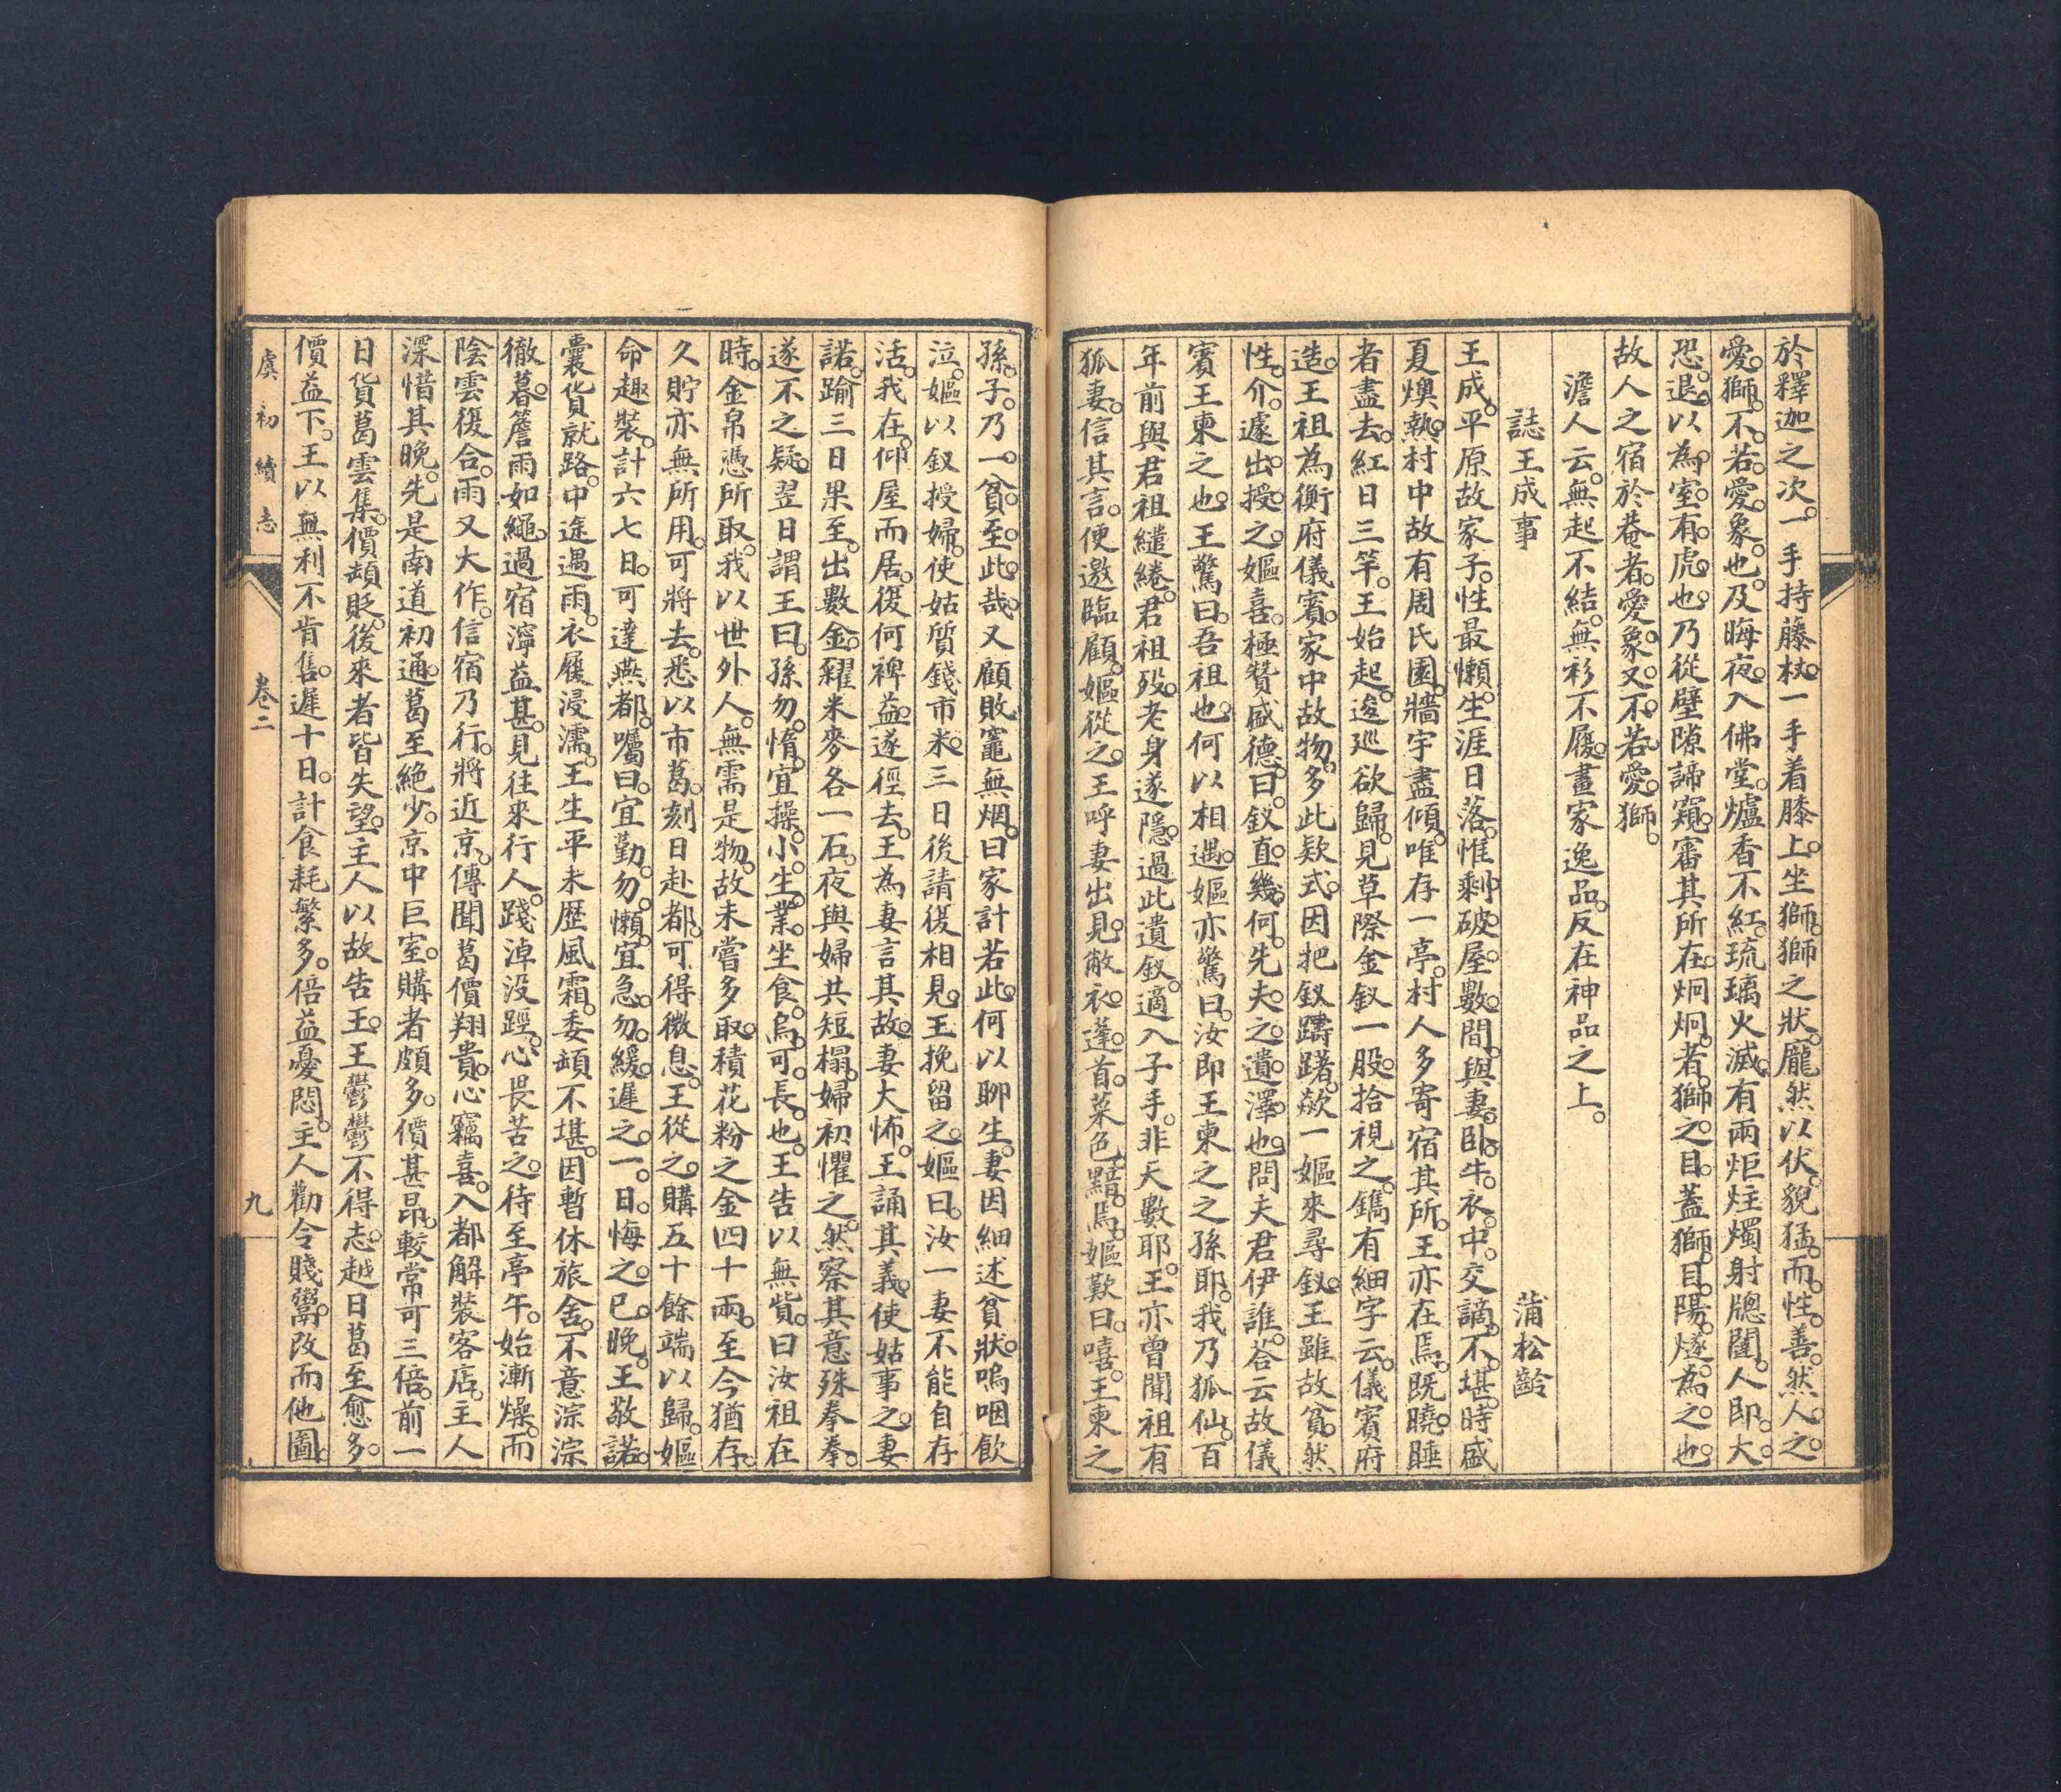 於釋迦之次。一手持藤杖。一手着膝上。坐獅。獅之狀。龐然以伏。貌猛。而性善。然人之
愛獅。不若愛象也。及晦夜。入佛堂。爐香不紅。琉璃火滅。有兩炬炷燭射牕闥。人即大
恐退。以為室有虎也。乃從壁隙諦窺。審其所在。炯炯者。獅之目。蓋獅目陽燧為之也。
故人之宿於菴者。愛象。又不若愛獅。
澹人云。無起不結。無衫不履。畫家逸品。反在神品之上。
誌王成事 蒲松齡
王成。平原故家子。性最懶。生涯日落。惟剩破屋數間。與妻臥牛衣中。交謫不堪。時盛
夏燠熱。村中故有周氏園。牆宇盡傾。唯存一亭。村人多寄宿其所。王亦在焉。既曉。睡
者盡去。紅日三竿。王始起。逡巡欲歸。見草際金釵一股。拾視之。鐫有細字云。儀賓府
造。王祖為衡府儀賓。家中故物。多此欵式。因把釵躊躇。歘一嫗來尋釵。王雖故貧。然
性介。遽出授之。嫗喜。極贊盛德。曰。釵直幾何。先夫之遺澤也。問夫君伊誰。荅云故儀
賓王柬之也。王驚曰。吾祖也。何以相遇。嫗亦驚曰。汝即王柬之之孫耶。我乃狐仙。百
年前與君祖繾綣。君祖歿。老身遂隱。過此遺釵。適入子手。非天數耶。王亦曾聞祖有
狐妻。信其言。便邀臨顧。嫗從之。王呼妻出見。敝衣蓬首。菜色黯焉。嫗歎曰。嘻。王柬之
孫子。乃一貧至此哉。又顧敗竈無烟。曰家計若此。何以聊生。妻因細述貧狀。嗚咽飲
泣。嫗以釵授婦。使姑質錢市米。三日後請復相見。王挽留之。嫗曰。汝一妻不能自存
活。我在。仰屋而居。復何裨益。遂徑去。王為妻言其故。妻大怖。王誦其義。使姑事之。妻
諾。踰三日果至。出數金。糴米麥各一石。夜與婦共短榻。婦初懼之。然察其意殊拳拳。
遂不之疑。翌日謂王曰。孫勿惰。宜操小生業。坐食烏可長也。王告以無貲。曰汝祖在
時。金帛憑所取。我以世外人。無需是物。故未嘗多取。積花粉之金四十兩。至今猶存。
久貯亦無所用。可將去。悉以市葛。刻日赴都。可得微息。王從之。購五十餘端以歸。嫗
命趣裝。計六七日。可達燕都。囑曰。宜勤勿懶。宜急勿緩。遲之一日。悔之已晚。王敬諾。
囊貨就路。中途遇雨。衣履浸濡。王生平未歷風霜。委頓不堪。因暫休旅舍。不意淙淙
徹暮。簷雨如繩。過宿濘益甚。見往來行人。踐淖沒踁。心畏苦之。待至亭午。始漸燥。而
陰雲復合。雨又大作。信宿乃行。將近京。傳聞葛價翔貴。心竊喜。入都解裝客店。主人
深惜其晚。先是南道初通。葛至絕少。京中巨室。購者頗多。價甚昂。較常可三倍。前一
日貨葛雲集。價頓貶。後來者皆失望。主人以故告王。王鬱鬱不得志。越日葛至愈多。
價益下。王以無利不肯售。遲十日。計食耗繁多。倍益憂悶。主人勸令賤鬻。改而他圖。
虞初續志 卷二 九